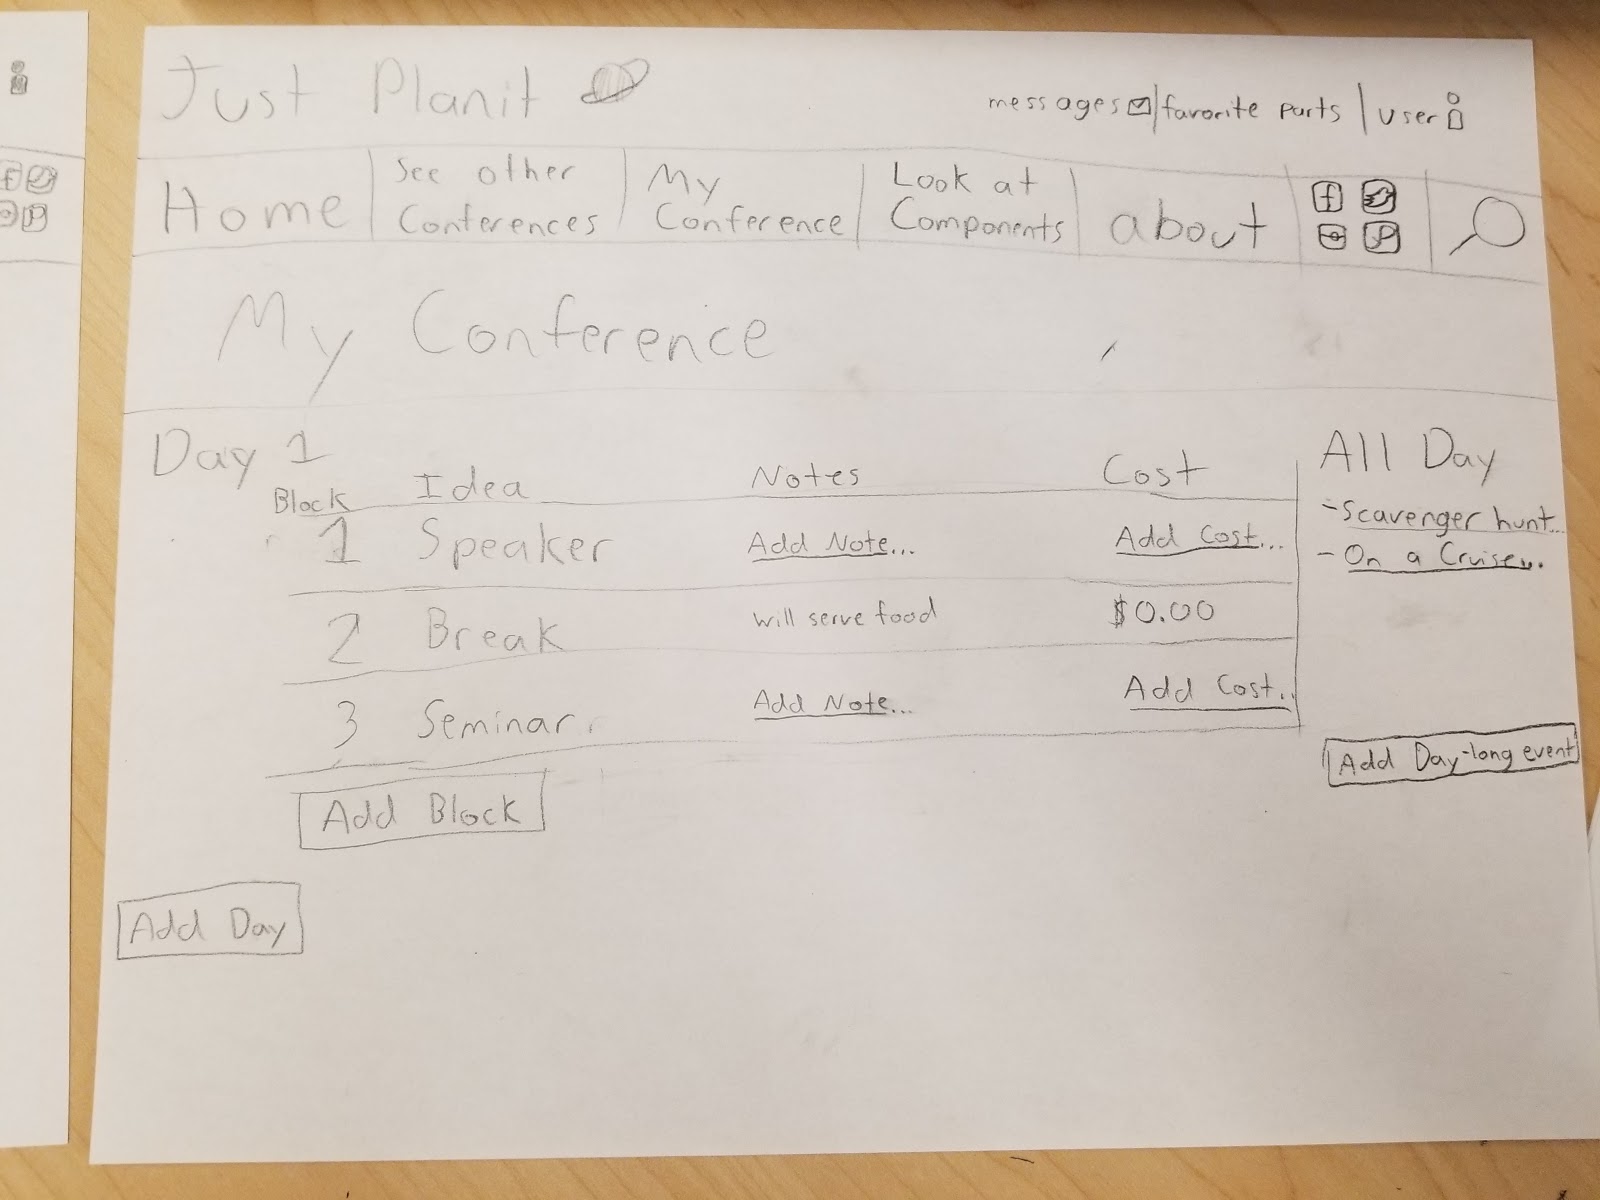 Just Planit
messages | favorite parts | user
Home
See other
Conferences
My
Conference
Look at
Components
about
My Conference
Day 1
Block Idea Notes Cost
1 Speaker Add Note... Add Cost...
2 Break will serve food $0.00
3 Seminar Add Note... Add Cost..
Add Block
Add Day
All Day
- Scavenger hunt...
- On a Cruise...
Add Day-long event